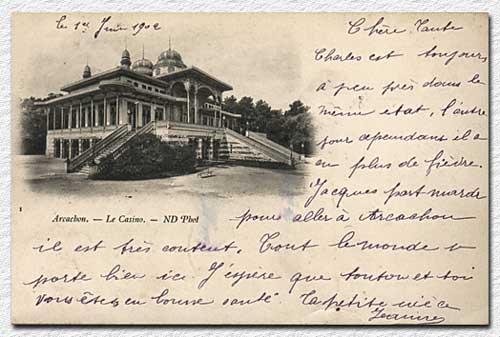 le 1er Juin 1902
Chère Tante
Charles est toujours
à peu près dans le
même état, l'autre
jour cependant il a
eu plus de fièvre.
Jacques part mardi
pour aller à Arcachon
Arcachon. — Le Casino. — ND Phot
1
il est très content. Tout le monde se
porte bien ici. J'espère que tonton et toi
vous êtes en bonne santé. Ta petite nièce
Jeanne